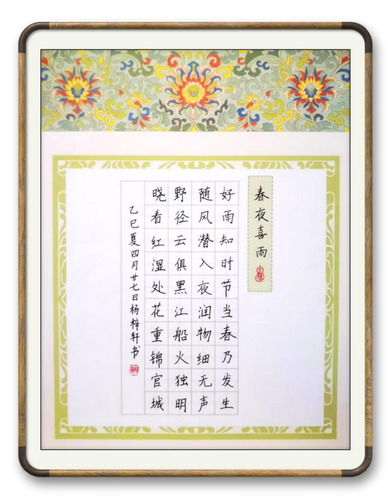 春夜喜雨
好雨知时节当春乃发生
随风潜入夜润物细无声
野径云俱黑江船火独明
晓看红湿处花重锦官城
乙巳夏四月廿七日杨梓轩书